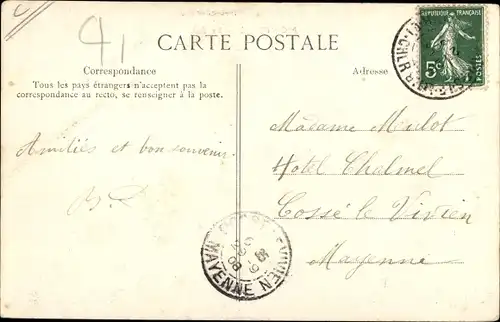 91
CARTE POSTALE
Correspondance
Tous les pays étrangers n'acceptent pas la
correspondance au recto, se renseigner à la poste.
Adresse
REPUBLIQUE FRANÇAISE
5c
POSTES
Amitiés et bon souvenir
Madame Mulot
Hotel Chalmel
Cossé le Vivien
Mayenne
MAYENNE